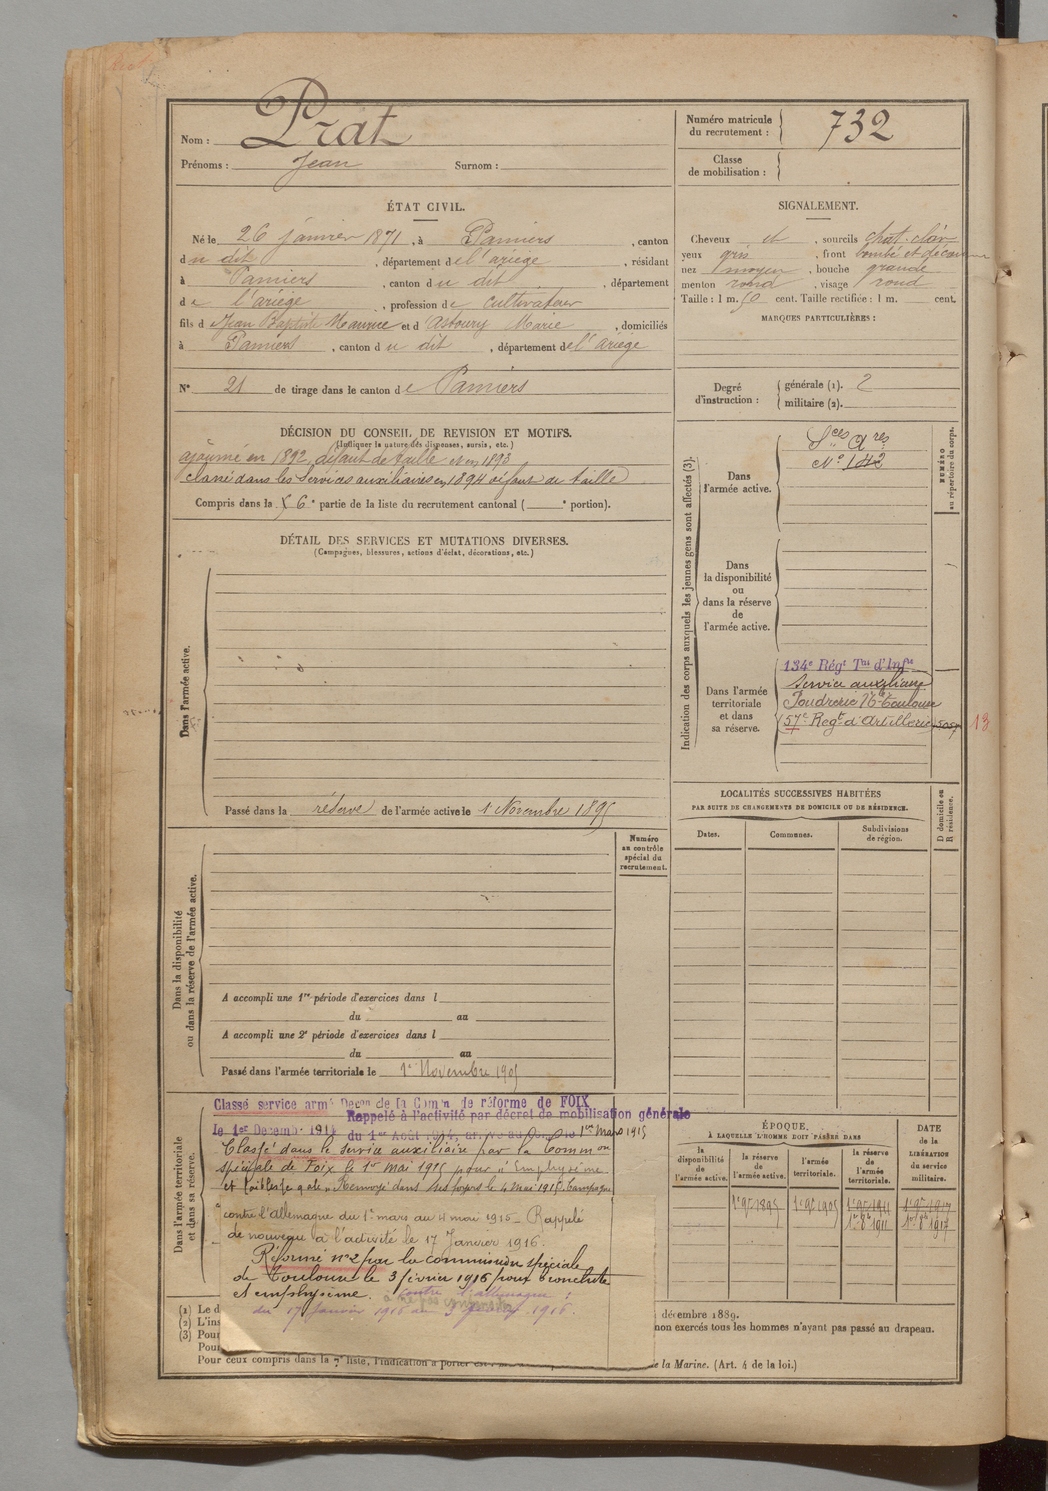 Nom : Prat
Prénoms : Jean Surnom :
Numéro matricule du recrutement : 732
Classe de mobilisation :
ÉTAT CIVIL.
Né le 26 janvier 1871, à Pamiers, canton
du dit, département de l'ariège, résidant
à Pamiers, canton du dit, département
de l'ariège, profession de cultivateur
fils de Jean Baptiste Maurice et d'Astoury Marie, domiciliés
à Pamiers, canton du dit, département de l'ariège
N° 21 de tirage dans le canton de Pamiers
SIGNALEMENT.
Cheveux et, sourcils chat. clair
yeux gris, front bombé et découvert
nez moyen, bouche grande
menton rond, visage rond
Taille : 1 m. 50 cent. Taille rectifiée : 1 m. cent.
MARQUES PARTICULIÈRES :
Degré d'instruction : générale (1). 2
militaire (2).
DÉCISION DU CONSEIL DE REVISION ET MOTIFS.
(Indiquer la nature des dispenses, sursis, etc.)
ajourné en 1892, défaut de taille et en 1893
classé dans les Services auxiliaires en 1894 défaut de taille
Compris dans la 6e partie de la liste du recrutement cantonal ( e portion).
DÉTAIL DES SERVICES ET MUTATIONS DIVERSES.
(Campagnes, blessures, actions d'éclat, décorations, etc.)
Dans l'armée active.
Passé dans la réserve de l'armée active le 1 Novembre 1895
Indication des corps auxquels les jeunes gens sont affectés (3).
NUMÉRO au répertoire du corps.
Dans l'armée active.
Sces Ares
N° 142
Dans la disponibilité ou dans la réserve de l'armée active.
Dans l'armée territoriale et dans sa réserve.
134e Régt Tal d'Infie
Service auxiliaire
Poudrerie Nle Toulouse
57e Regt d'Artillerie 5057
13
LOCALITÉS SUCCESSIVES HABITÉES
PAR SUITE DE CHANGEMENTS DE DOMICILE OU DE RÉSIDENCE.
D domicile ou R résidence.
Dates. Communes. Subdivisions de région.
Numéro au contrôle spécial du recrutement.
Dans la disponibilité ou dans la réserve de l'armée active.
A accompli une 1re période d'exercices dans l
du au
A accompli une 2e période d'exercices dans l
du au
Passé dans l'armée territoriale le 1er Novembre 1905
Dans l'armée territoriale et dans sa réserve.
Classé service armé Décon de la Comm de réforme de FOIX
Rappelé à l'activité par décret de mobilisation générale
le 1er Décemb 1914
du 1er Août 1914, arrivé au Corps le 1er Mars 1915
Classé dans le service auxiliaire par la Common
spéciale de Foix le 1er mai 1915 pour " Emphysème
et faiblesse gale " Renvoyé dans ses foyers le 4 Mai 1915. Campagne
contre l'Allemagne du 1er mars au 4 mai 1915 - Rappelé
de nouveau à l'activité le 17 Janvier 1916.
Réformé n°2 par la commission spéciale
de Toulouse le 3 février 1916 pour bronchite
et emphysème. contre l'allemagne :
du 17 Janvier 1916 au 3 février 1916.
ÉPOQUE
À LAQUELLE L'HOMME DOIT PASSER DANS
la disponibilité de l'armée active.
la réserve de l'armée active.
l'armée territoriale.
la réserve de l'armée territoriale.
DATE de la LIBÉRATION du service militaire.
1er 9bre 1895 1er 9bre 1905 1er 9bre 1911 1er 9bre 1917
1er 8bre 1911 1er 8bre 1917
(1) Le d
(2) L'ins
(3) Pour
Pour
décembre 1889.
non exercés tous les hommes n'ayant pas passé au drapeau.
Pour ceux compris dans la 7e liste, l'indication à porter est
de la Marine. (Art. 4 de la loi.)